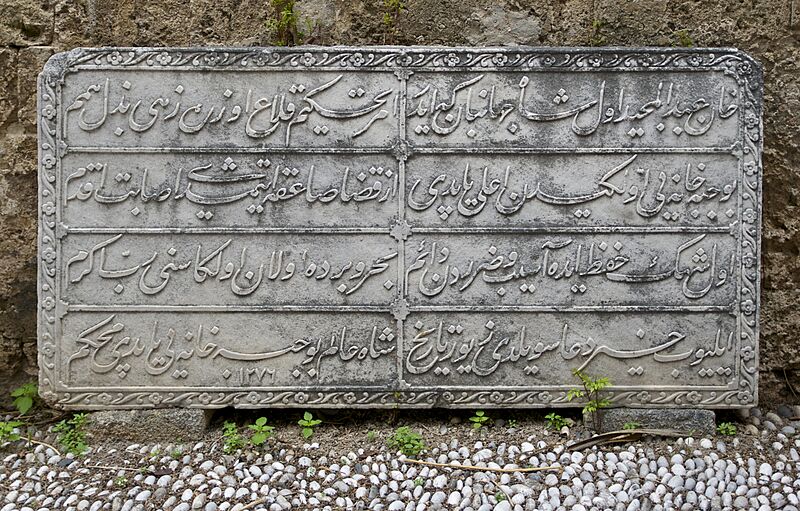 خان عبدالمجید اول شاه جهانبان كیم ایدر امر تحكیم قلاع اوزره زهی بذل همم
بو جبه خانه یی اولكیدن اعلی یاپدی از قضا صاعقه ایتمشدی اصابت اقدم
اول شهك حفظ ایده آسیب و ضرردن دائم بحر و برده اولان اولكاسنی رب اكرم
ایلیوب خیر دعا سویلدی نوری تاریخ شاه عالم بو جبه خانه یی یاپدی محكم
١٢٧٦